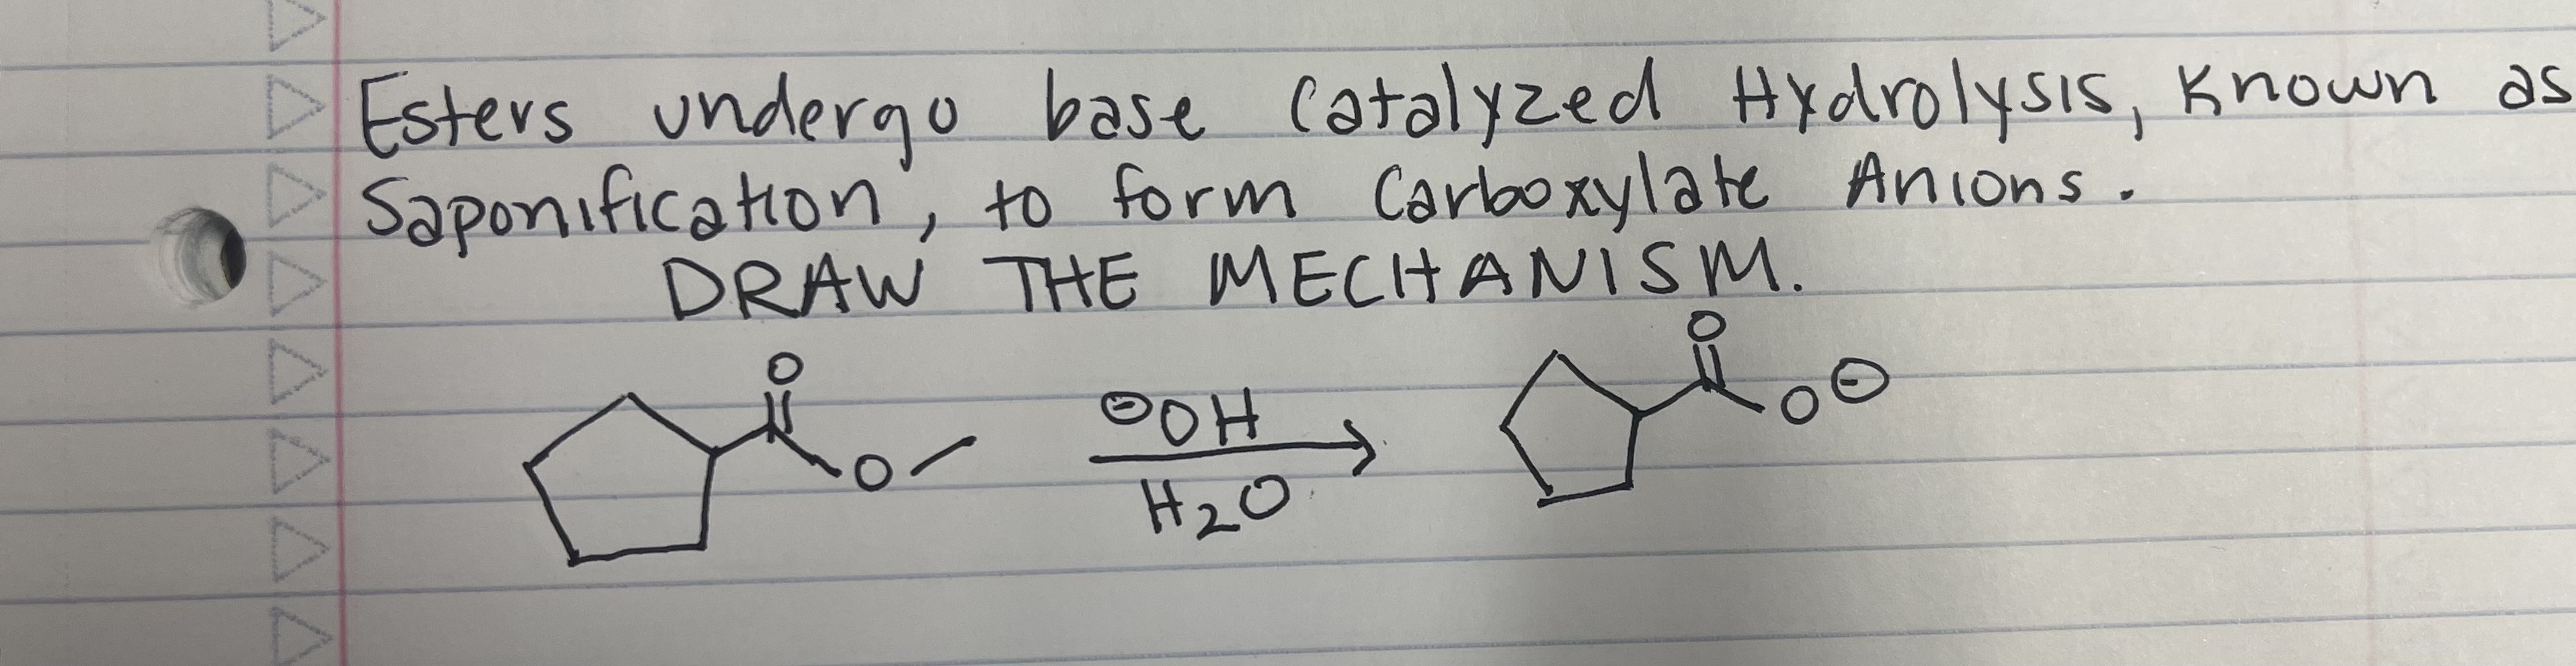 Esters undergo base Catalyzed Hydrolysis, Known as
Saponification, to form Carboxylate Anions.
DRAW THE MECHANISM.
O
O
⊖OH
H2O
O
O⊖